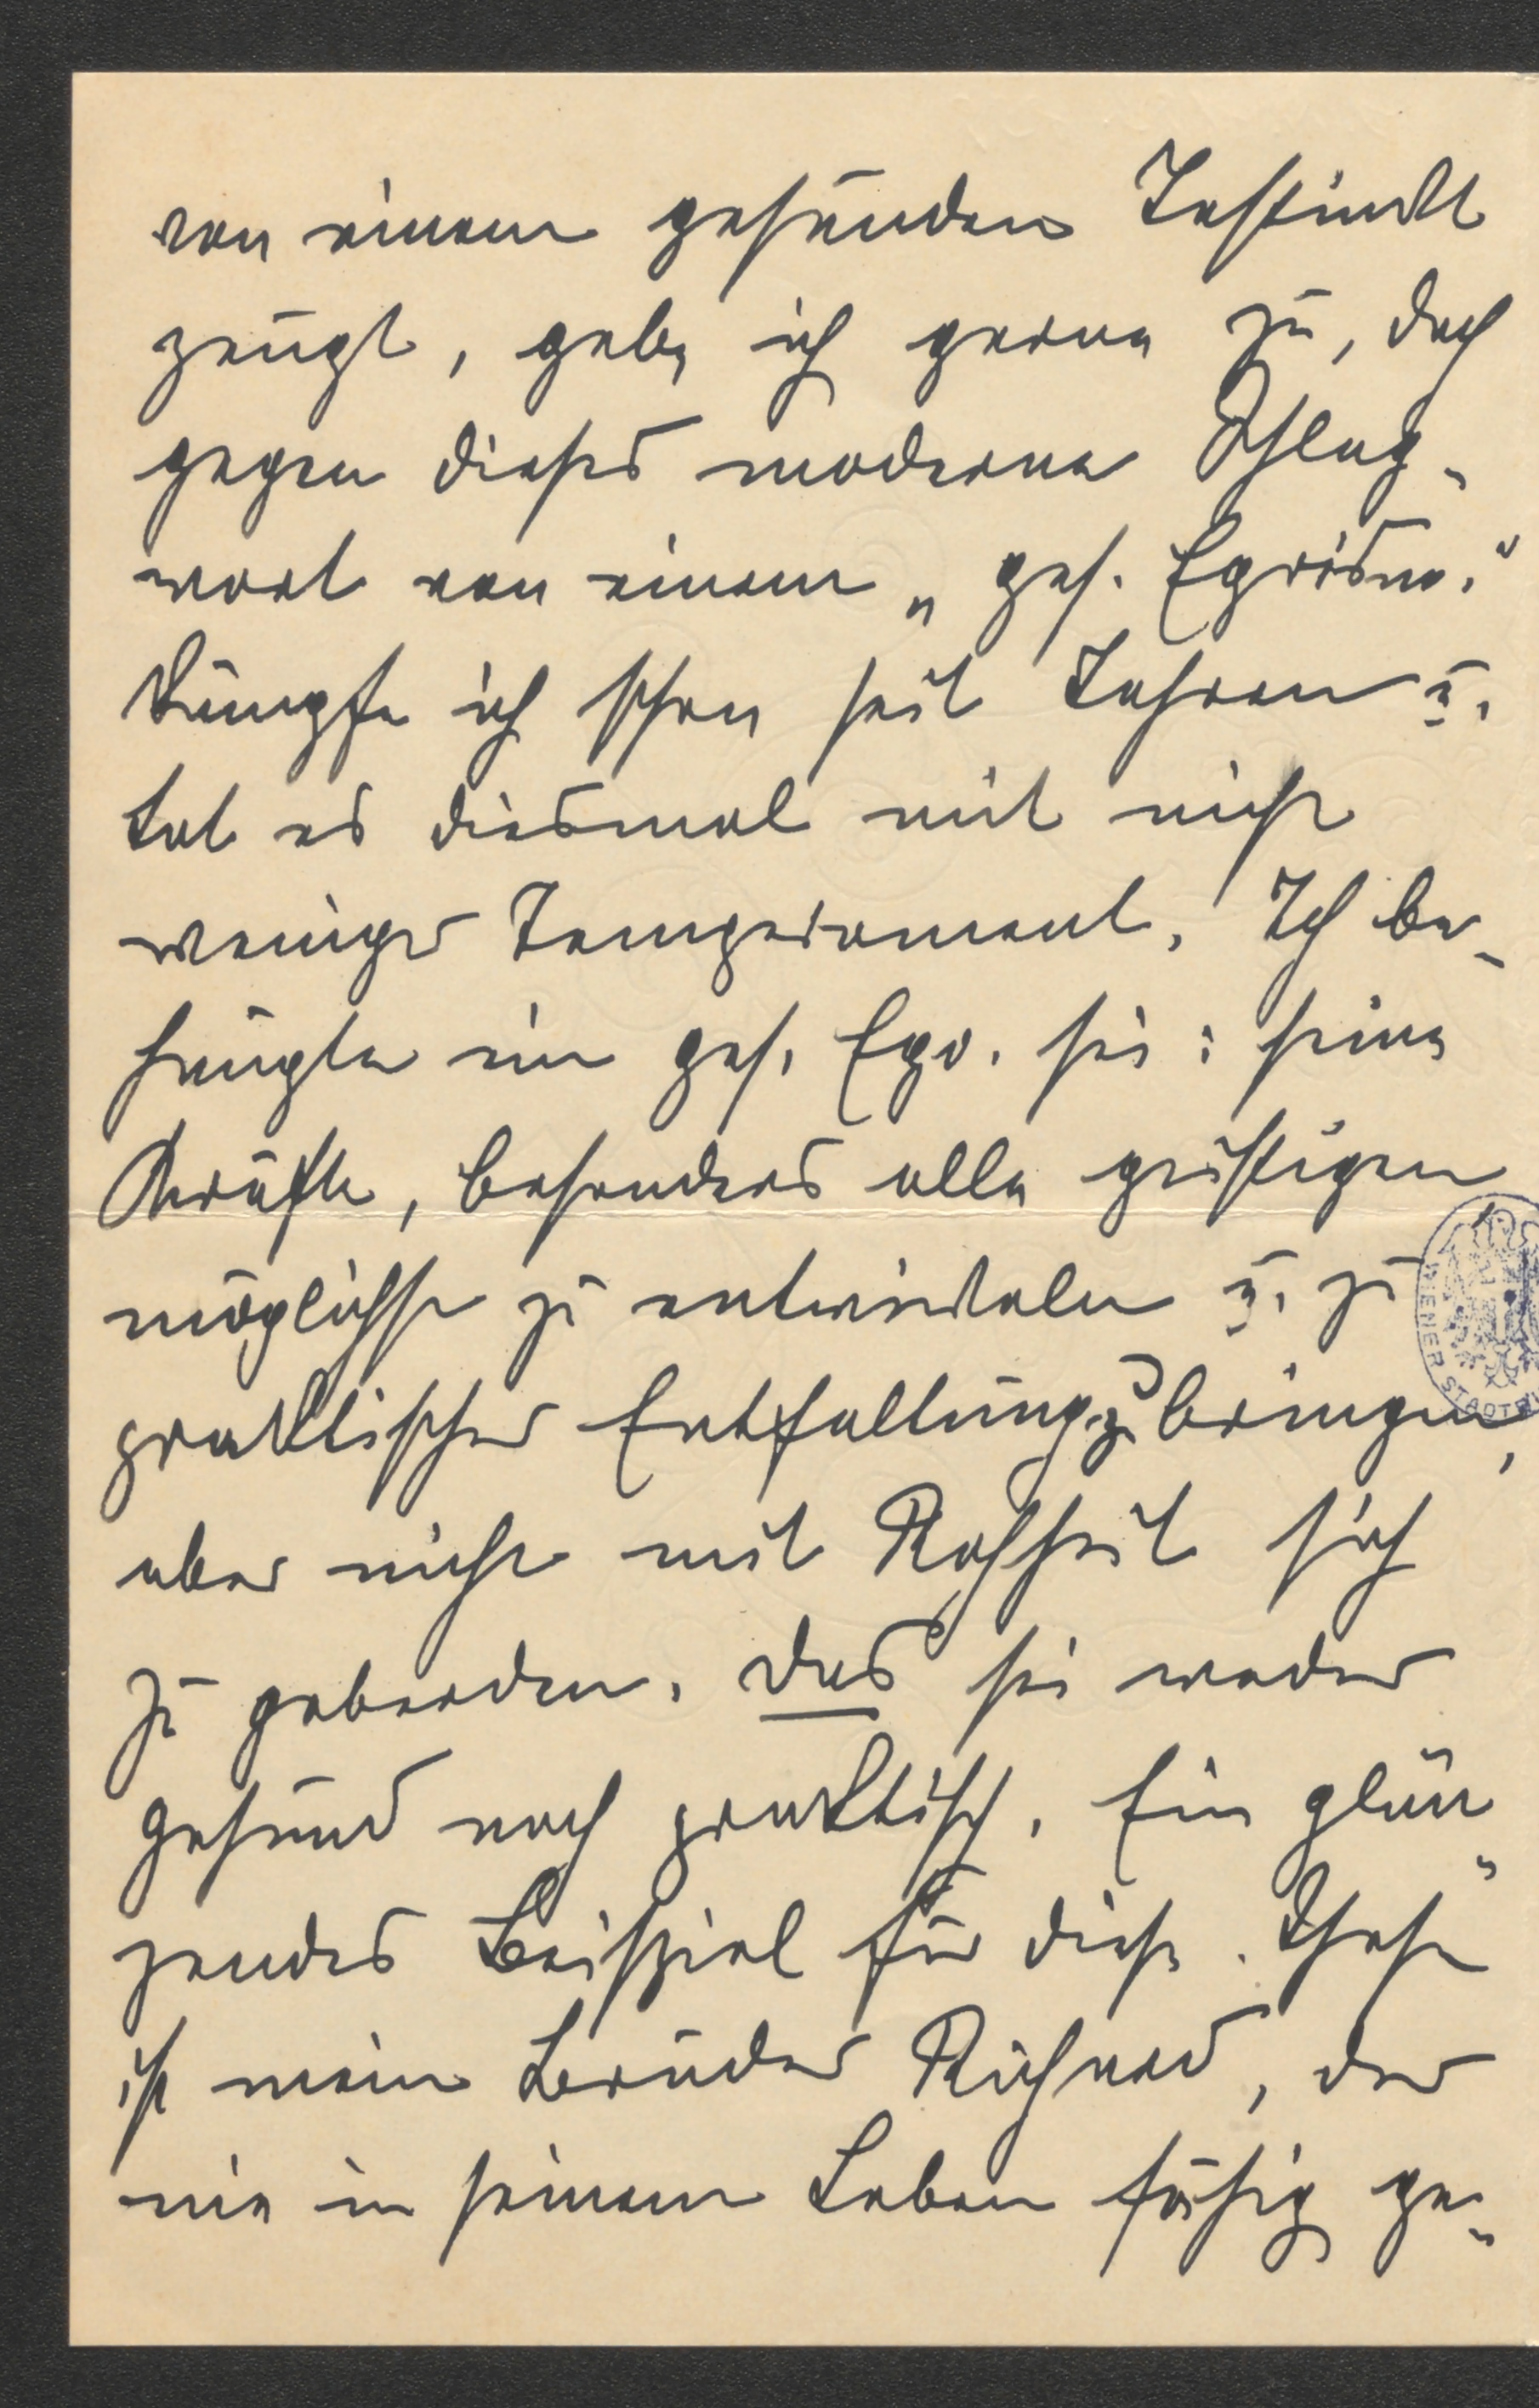 von einem gesunden Instinkt
zeugt, gebe ich gerne zu, doch
gegen dieses moderne Schlag-
wort von einem „ges. Egoism."
kämpfe ich schon seit Jahren u.
tat es diesmal mit nicht
weniger Temperament. Ich be-
häupte ein ges. Ego. sei: seine
Kräfte, besonders alle geistigen
möglichst zu entwickeln u. zu
praktischer Entfaltung zu bringen,
aber nicht mit Rohheit sich
zu geberden. Das sei weder
gesund noch praktisch. Ein glän-
zendes Beispiel für diese These
ist mein Bruder Richard, der
nie in seinem Leben fähig ge-
WIENER STADT